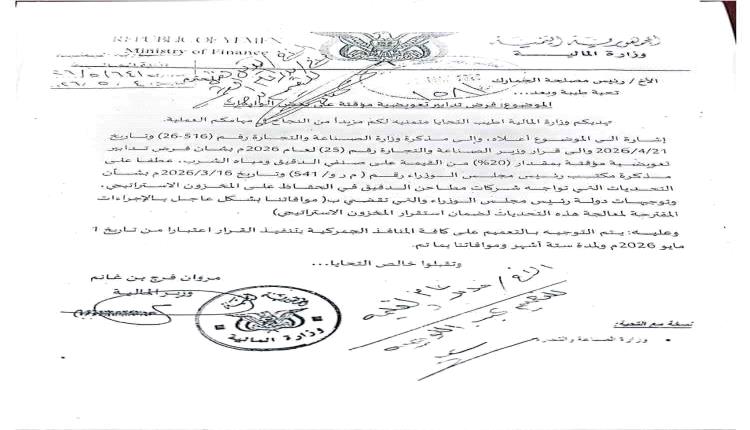 الجمهورية اليمنية
وزارة المالية
REPUBLIC OF YEMEN
Ministry of Finance
الأخ/ رئيس مصلحة الجمارك
تحية طيبة وبعد...
الموضوع: فرض تدابير تعويضية مؤقتة على بعض الواردات
يديكم وزارة المالية اطيب التحايا متمنيه لكم مزيداً من النجاح في مهامكم العملية.
إشارة الى الموضوع أعلاه، وإلى مذكرة وزارة الصناعة والتجارة رقم (516-26) وتاريخ
2026/4/21 والى قرار وزير الصناعة والتجارة رقم (25) لعام 2026م بشان فرض تدابير
تعويضية مؤقتة بمقدار (20%) من القيمة على صنفي الدقيق ومياه الشرب، عطفا على
مذكرة مكتب رئيس مجلس الوزراء رقم (م ر و/ 541) وتاريخ 2026/3/16م بشأن
التحديات التي تواجه شركات مطاحن الدقيق في الحفاظ على المخزون الاستراتيجي،
وتوجيهات دولة رئيس مجلس الوزراء والتي تقضي ب( موافاتنا بشكل عاجل بالإجراءات
المقترحة لمعالجة هذه التحديات لضمان استقرار المخزون الاستراتيجي)
وعليه: يتم التوجيه بالتعميم على كافة المنافذ الجمركية بتنفيذ القرار اعتبارا من تاريخ 1
مايو 2026م ولمدة ستة أشهر وموافاتنا بما تم.
وتقبلوا خالص التحايا...
مروان فرج بن غانم
وزير المالية
وزارة المالية
نسخة مع التحية:
• وزارة الصناعة والتجارة